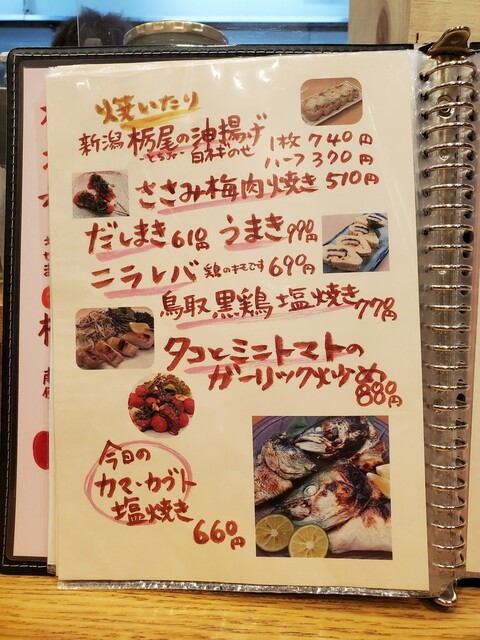 焼いたり
新潟 栃尾の油揚げ 1枚 740円
-とちお- 白ネギのせ ハーフ 370円
ささみ梅肉焼き 510円
だしまき 610円 うまき 990円
ニラレバ 鶏のキモです 690円
鳥取 黒鶏 塩焼き 770円
タコとミニトマトの
ガーリック炒め
880円
今日の
カマ・カブト
塩焼き
660円